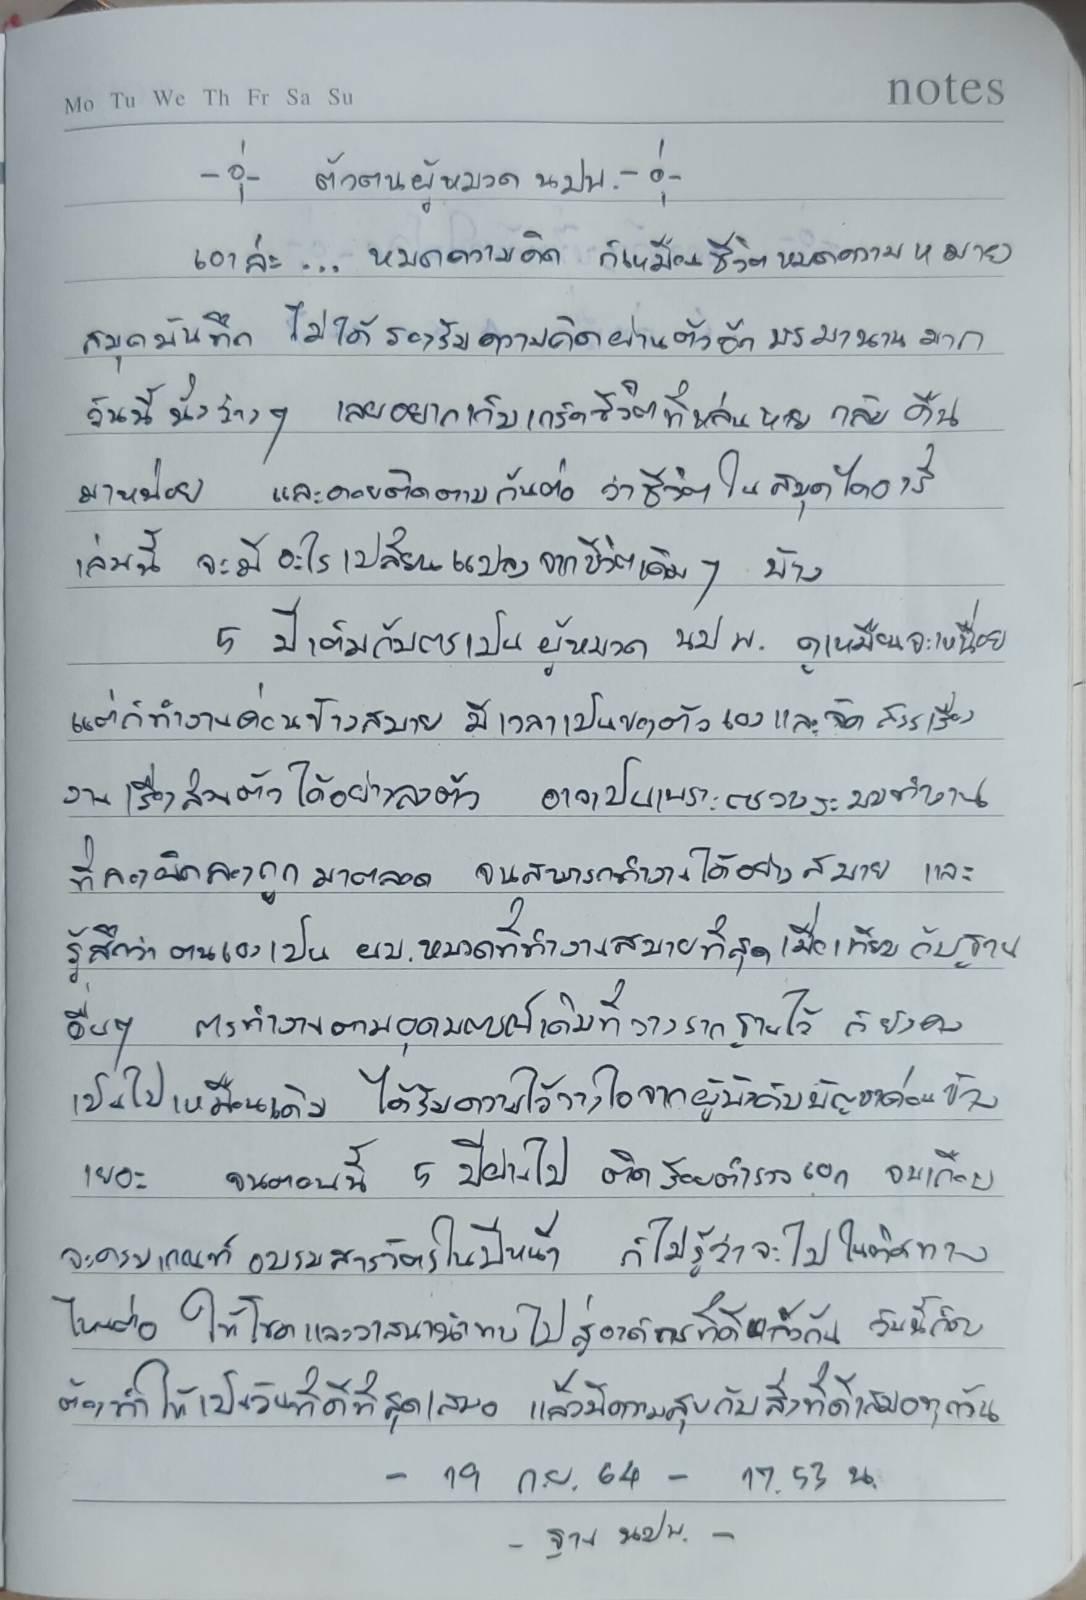 Mo Tu We Th Fr Sa Su
notes
ตัวตนผู้หมวด นปพ.
เอาล่ะ ... หมดความคิด ก็เหมือนชีวิตหมดความหมาย
สมุดบันทึก ไม่ได้รองรับความคิดผ่านตัวอักษรมานานมาก
วันนี้นั่งว่างๆ เลยอยากเก็บเกร็ดชีวิตที่หล่นหาย กลับคืน
มาหน่อย และคอยติดตามกันต่อ ว่าชีวิตในสมุดไดอารี่
เล่มนี้ จะมีอะไรเปลี่ยนแปลงจากชีวิตเดิมๆ บ้าง
5 ปีเต็มกับการเป็นผู้หมวด นปพ. ดูเหมือนจะเหนื่อย
แต่ก็ทำงานค่อนข้างสบาย มีเวลาเป็นของตัวเองและจัดสรรเรื่อง
งานเรื่องส่วนตัวได้อย่างลงตัว อาจเป็นเพราะวางระบบทำงาน
ที่ลองผิดลองถูกมาตลอด จนสามารถทำงานได้อย่างสบาย และ
รู้สึกว่าตนเองเป็น ผบ.หมวดที่ทำงานสบายที่สุดเมื่อเทียบกับฐาน
อื่นๆ การทำงานตามอุดมการณ์เดิมที่วางรากฐานไว้ ก็ยังคง
เป็นไปเหมือนเดิม ได้รับความไว้วางใจจากผู้บังคับบัญชาค่อนข้าง
เยอะ จนตอนนี้ 5 ปีผ่านไป ติดร้อยตำรวจเอก จนเกือบ
จะครบเกณฑ์อบรมสารวัตรในปีหน้า ก็ไม่รู้ว่าจะไปในทิศทาง
ไหนต่อ ให้โชคและวาสนานำทางไปสู่ที่ดีแล้วกัน วันนี้ก็
ต้องทำให้เป็นวันที่ดีที่สุดเสมอ แล้วมีความสุขกับสิ่งที่ดีเสมอทุกวัน
- 19 ก.ย. 64 - 17.53 น.
- ฐาน นปพ. -